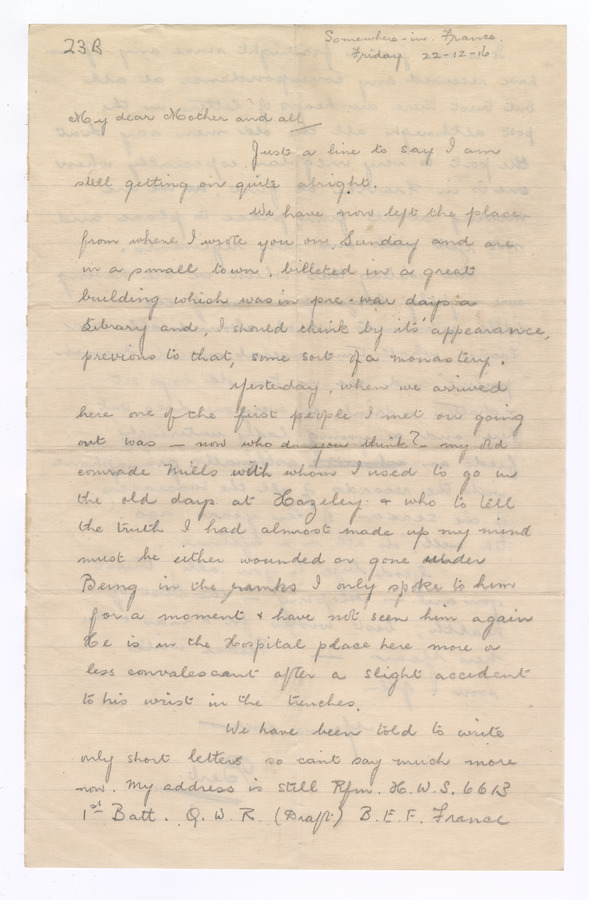 23B
Somewhere-in. France.
Friday 22-12-16
My dear Mother and all
Just a line to say I am
still getting on quite alright.
We have now left the place
from where I wrote you on Sunday and are
in a small town, billeted in a great
building which was in pre-war days a
Library and, I should think by its appearance,
previous to that, some sort of a monastery.
Yesterday, when we arrived
here one of the first people I met on going
out was – now who do you think? – my old
comrade Mills with whom I used to go in
the old days at Hazeley & who to tell
the truth I had almost made up my mind
must be either wounded or gone under
Being in the ranks I only spoke to him
for a moment & have not seen him again
He is in the Hospital place here more or
less convalescant after a slight accident
to his wrist in the trenches.
We have been told to write
only short letters so cant say much more
now. My address is still Rfm. H.W.S. 6613
1st Batt. Q.W.R. (Draft) B.E.F. France